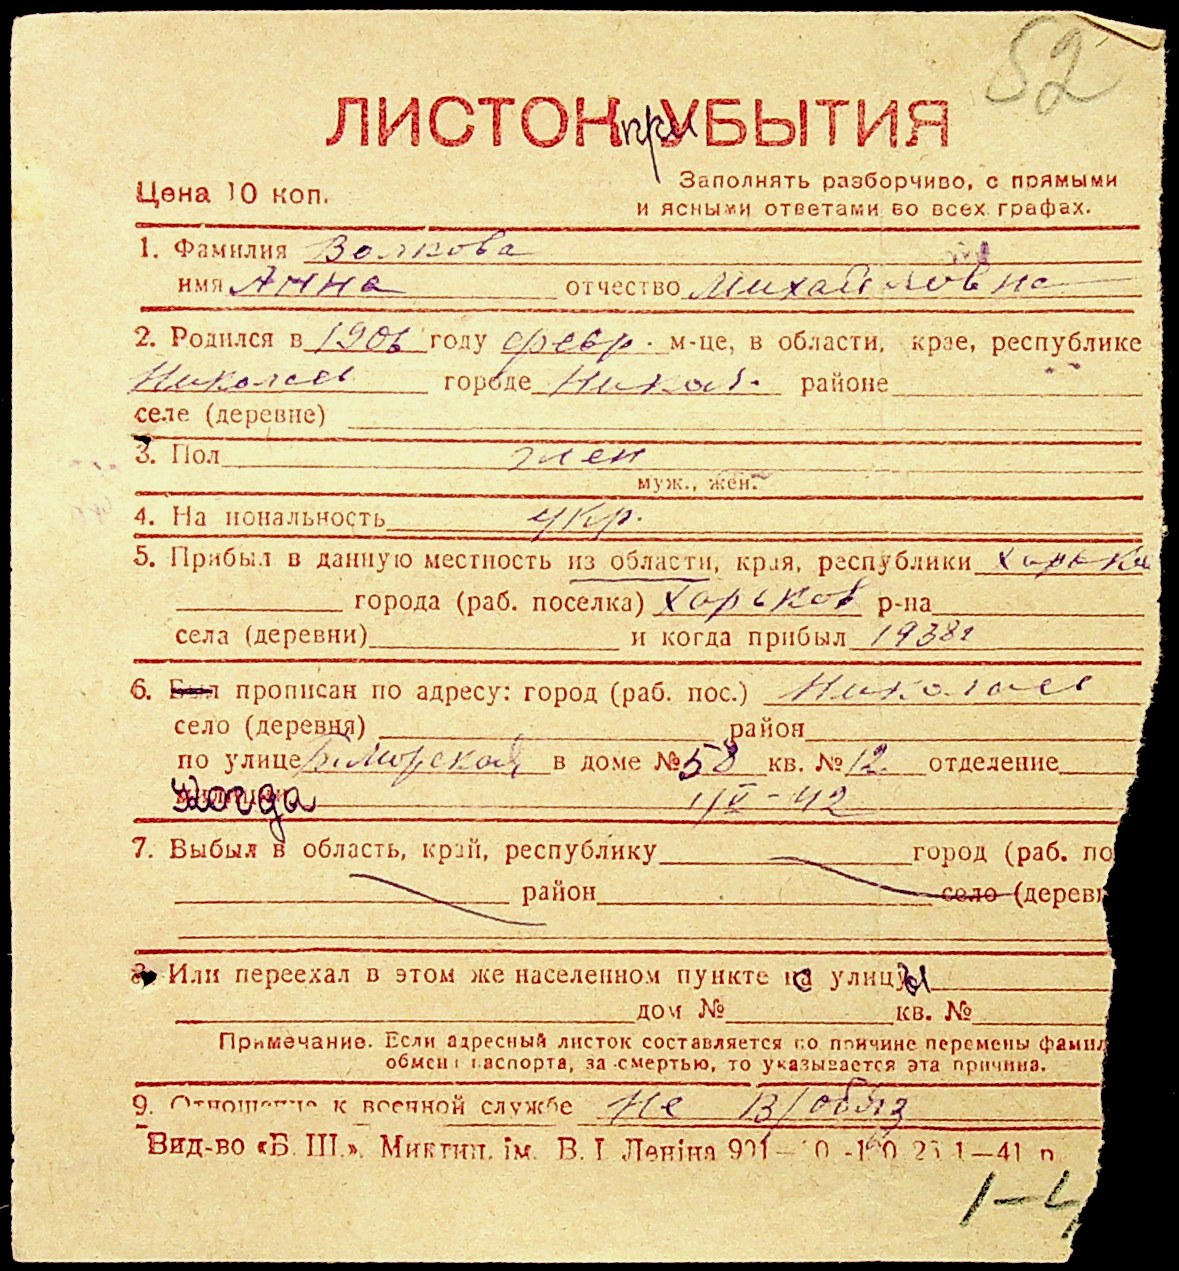 52
ЛИСТОК при УБЫТИЯ
Цена 10 коп.
Заполнять разборчиво, с прямыми
и ясными ответами во всех графах.
1. Фамилия Волкова
имя Анна отчество Михайловна
2. Родился в 1906 году февр. м-це, в области, крае, республике
Николаев городе Никол. районе
селе (деревне)
3. Пол жен
муж., жен.
4. Национальность укр.
5. Прибыл в данную местность из области, края, республики Харьков
города (раб. поселка) Харьков р-на
села (деревни) и когда прибыл 1938г
6. Был прописан по адресу: город (раб. пос.) Николаев
село (деревня) район
по улице Б. Морской в доме № 58 кв. № 12 отделение
Когда 1/V-42
7. Выбыл в область, край, республику город (раб. по
район село (деревн
8. Или переехал в этом же населенном пункте с улицы
дом № кв. №
Примечание. Если адресный листок составляется по причине перемены фамил
обмена паспорта, за смертью, то указывается эта причина.
9. Отношение к военной службе Не в/обяз
Вид-во «Б. Ш.». Миктип. ім. В. І. Леніна 1—41 р.
1-4